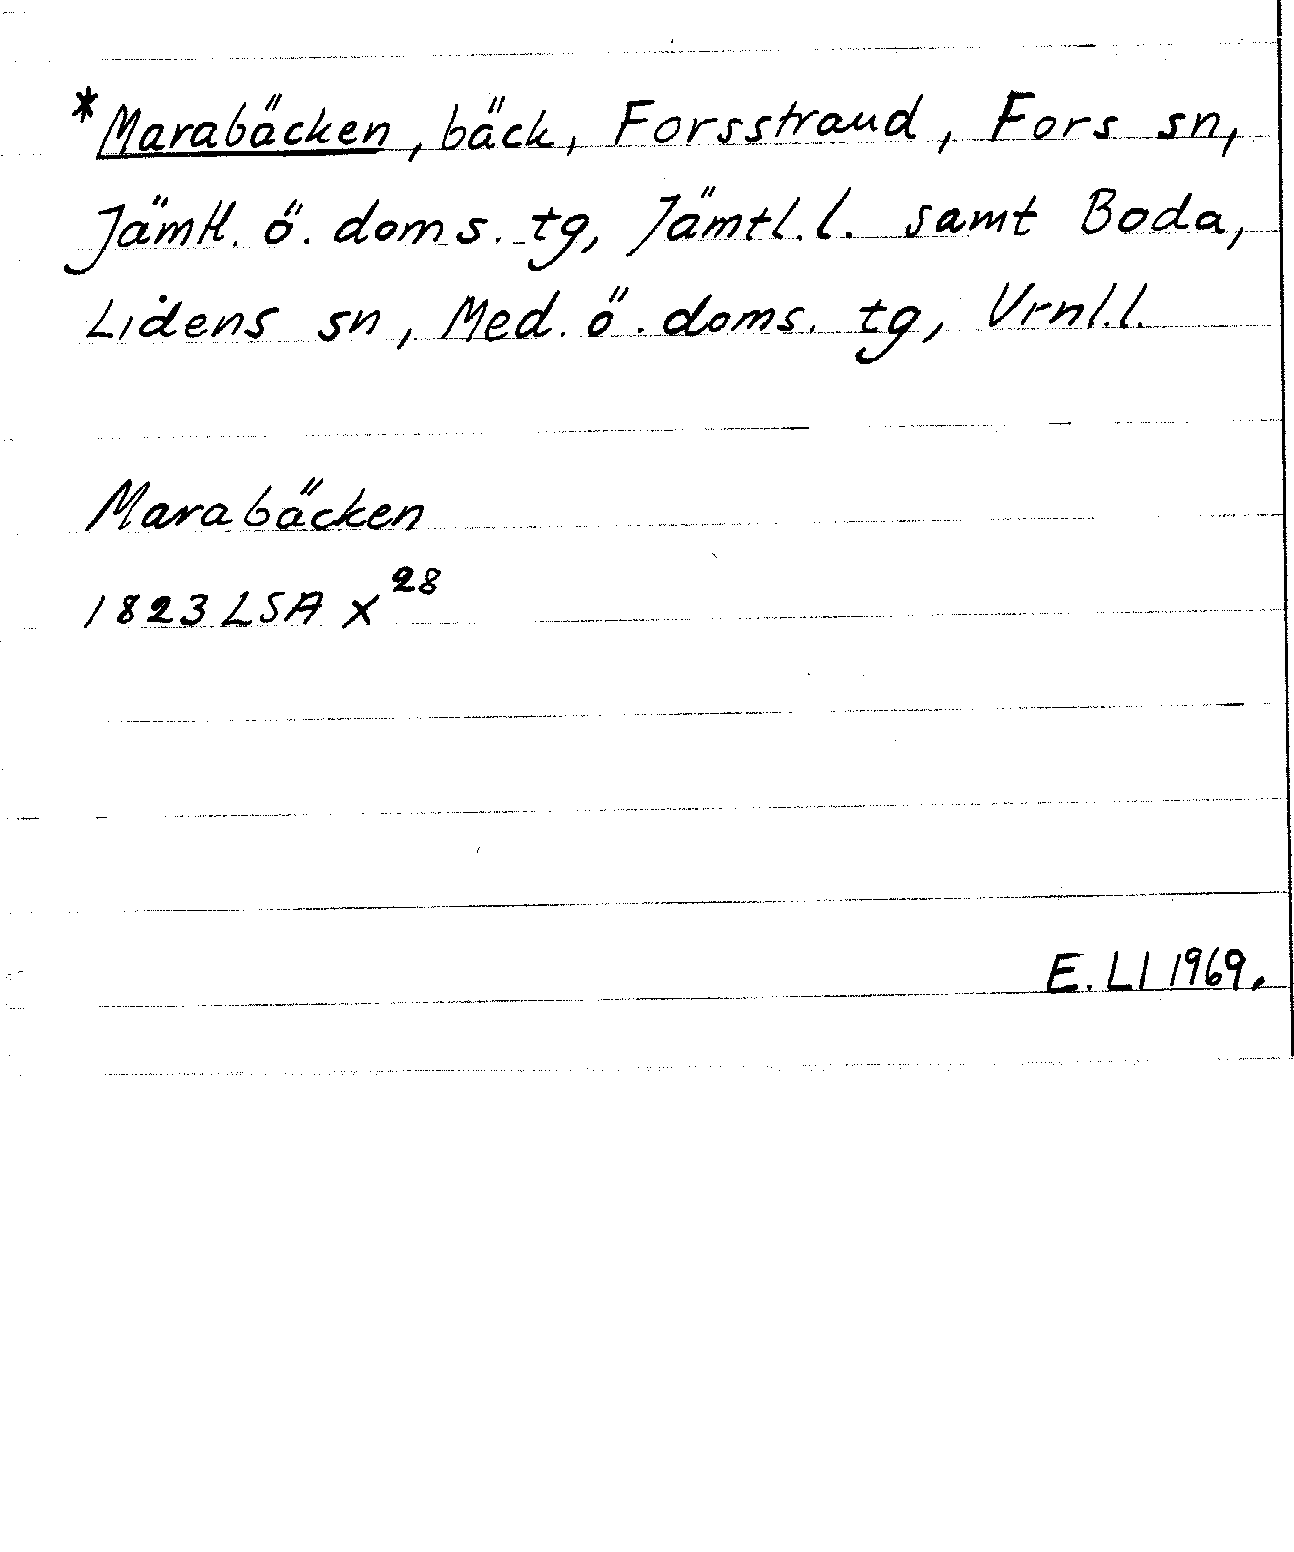 *Marabäcken, bäck, Forsstrand, Fors sn,
Jämtl. ö. doms. tg, Jämtl. l. samt Boda,
Lidens sn, Med. ö. doms. tg, Vrnl. l.
Marabäcken
1823 LSA X 28
E. LI 1969.